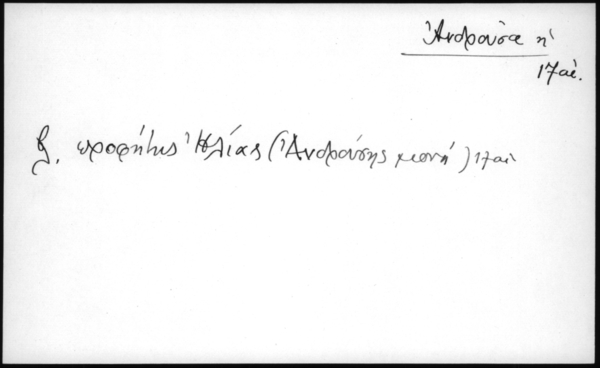 Ἀνδρούσα ἡ
17 αἰ.
βλ. προφήτης Ἠλίας (Ἀνδρούσης μονή) 17 αἰ